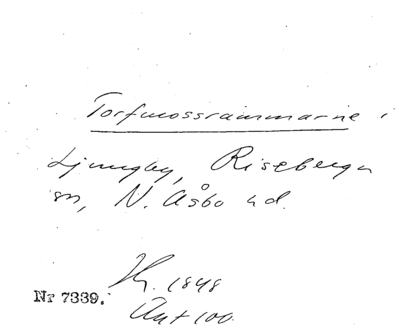 Torfmossrammarne i
Ljungby, Riseberga
sn, N. Åsbo hd.
Hr. 1848
Nr 7339.
Ant 100.